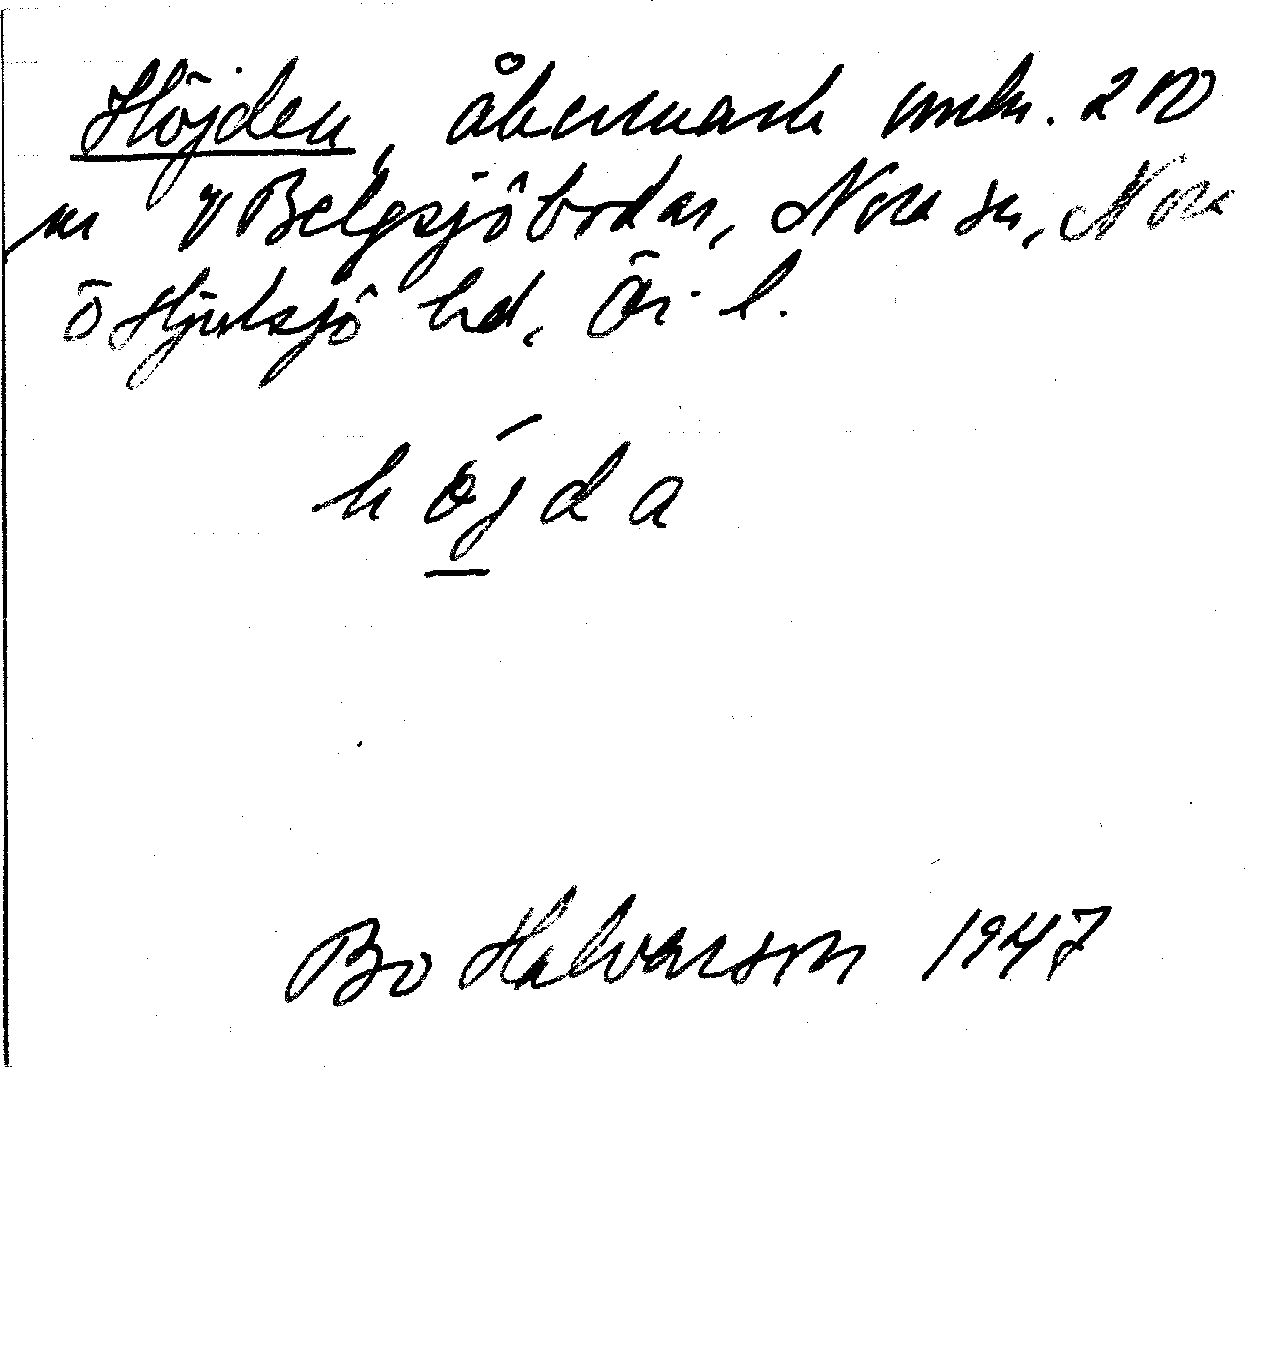 Höjden, åkermark omkr. 200
m V Belgsjöbodar, Nora sn, Nora
o Hjulsjö hd, Ör. l.
högda
Bo Halvarson 1947